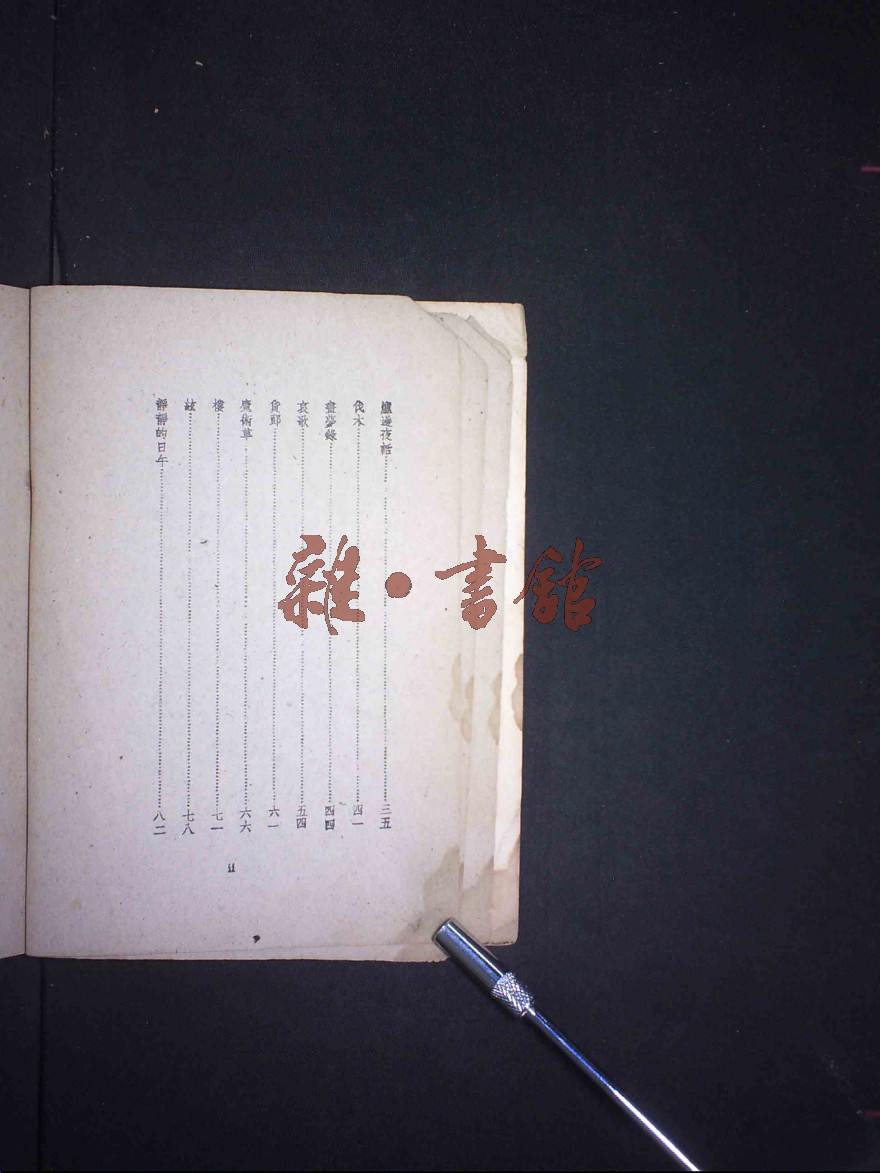 爐邊夜話……三五
伐木……四一
畫夢錄……四四
哀歌……五四
貨郎……六一
魔術草……六六
樓……七一
弦……七八
靜靜的日午……八二
ii
雜·書館